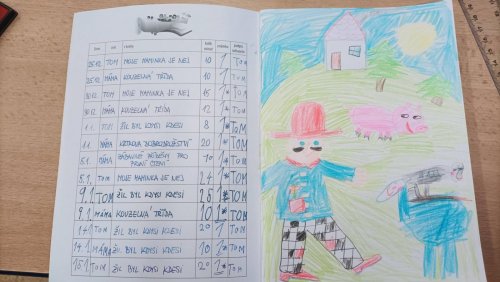 25.12. TOM MOJE MAMINKA JE NEJ 10 1* TOM
25.12. MÁMA KOUZELNÁ TŘÍDA 10 1* TOM
30.12. TOM MOJE MAMINKA JE NEJ 15 1* TOM
30.12. MÁMA KOUZELNÁ TŘÍDA 12 1* TOM
1.1. TOM ŽIL BYL KDYSI KDESI 8 1* TOM
1.1. MÁMA DOBRODRUŽSTVÍ 20 1* TOM
5.1. MÁMA ZÁBAVNÉ PŘÍBĚHY PRO PRVNÍ ČTENÍ 10 1* TOM
5.1. TOM MOJE MAMINKA JE NEJ 24 1* TOM
9.1. TOM ŽIL BYL KDYSI KDESI 25 1* TOM
9.1. MÁMA KOUZELNÁ TŘÍDA 10 1* TOM
14.1. TOM ŽIL BYL KDYSI KDESI 20 1* TOM
14.1. MÁMA ŽIL BYL KDYSI KDESI 10 1* TOM
15.1. TOM ŽIL BYL KDYSI KDESI 20 1* TOM